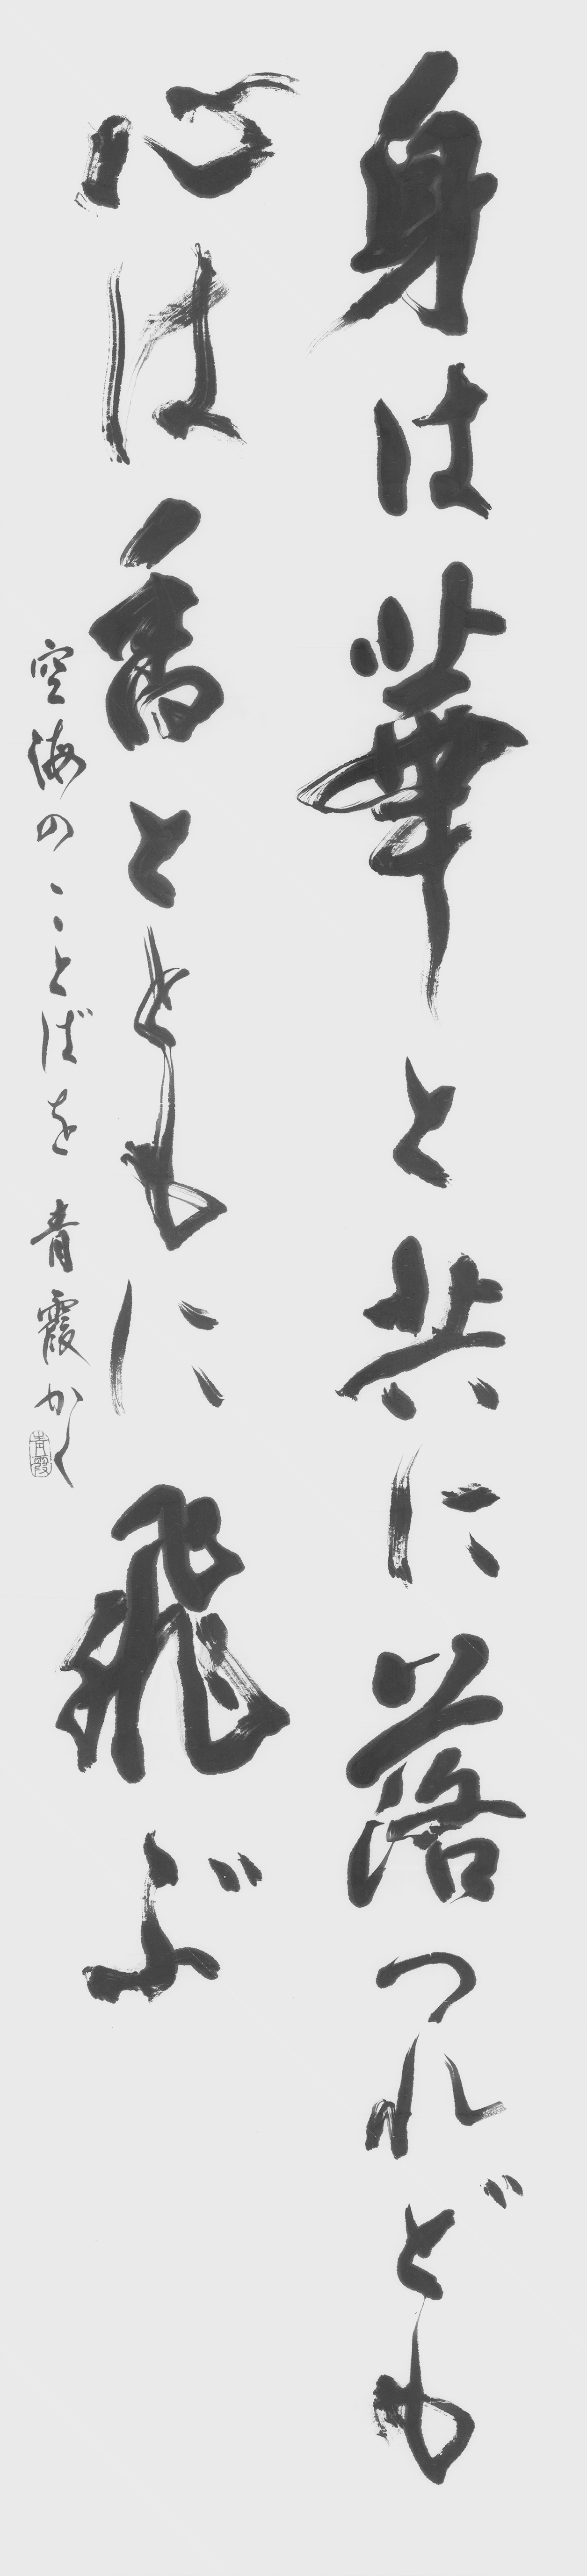 身は華と共に落つれども
心は香とともに飛ぶ
空海のことばを 青霞かく
青霞